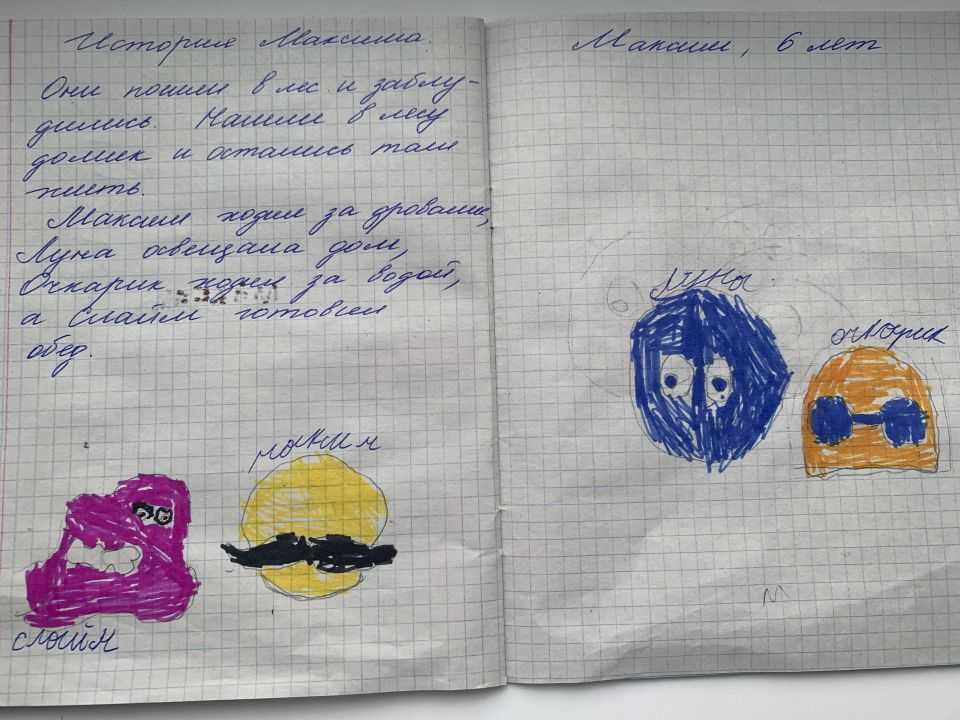 История Максима.
Они пошли в лес и заблу-
дились. Нашли в лесу
домик и остались там
жить.
Максим ходил за дровами,
Луна освещала дом,
Очкарик ходил за водой,
а Слайм готовил
обед.
слайм
Максим, 6 лет
луны
очкарик
м